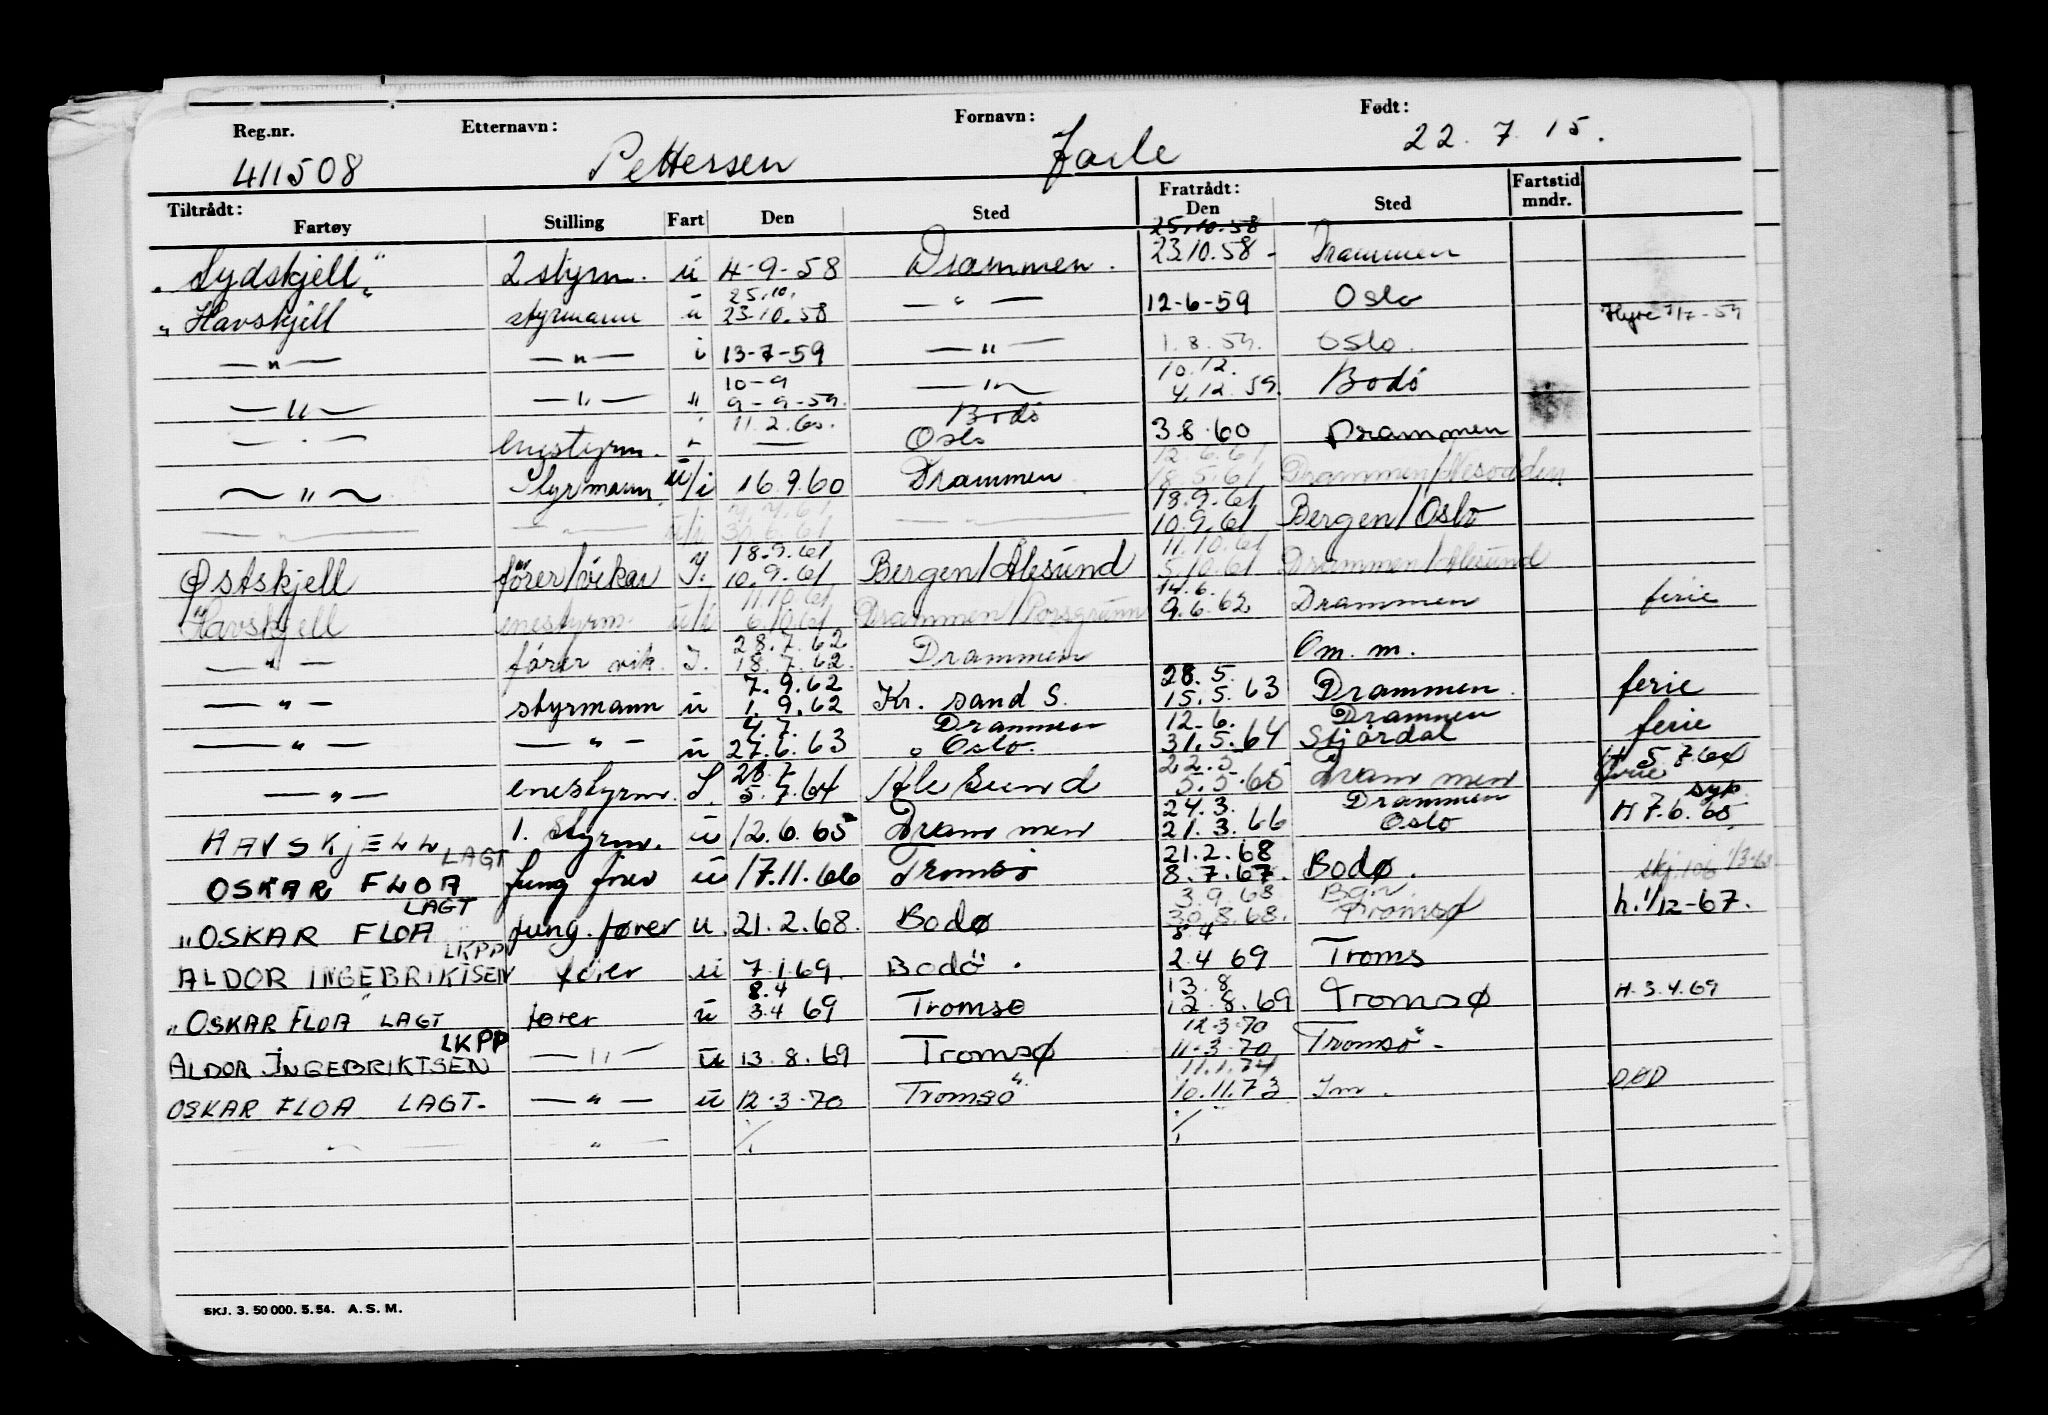 Reg.nr. Etternavn: Fornavn: Født:
411508 Pettersen Jarle 22. 7. 15.
Tiltrådt: Fratrådt: Fartstid
Fartøy Stilling Fart Den Sted Den Sted mndr.
25.10.58
"Sydskjell" 2 styrm. u 4-9-58 Drammen. 23.10.58- Drammen
25.10.
"Havskjell" styrmann u 23.10.58 — " — 12-6-59 Oslo Hyre 1/7-59
— " — — " — i 13-7-59 — " — 1.8.59. Oslo.
10-9 10.12.
— " — — " — " 9-9-59. — " — 4.12.59. Bodø
11.2.60. Bodø
— " — enestyrm. — Oslo 3.8.60 Drammen
12.6.61
— " — Styrmann u/i 16.9.60 Drammen 18.5.61 Drammen/Nesodden
18.9.61
— " — — " — u/i — " — 10.9.61 Bergen/Oslo
18.9.61 11.10.61
Østskjell fører/vikar I. 10.9.61 Bergen/Ålesund 5.10.61 Drammen/Ålesund
11.10.61 14.6.
"Havskjell enestyrm. u/i 6.10.61 Drammen/Porsgrunn 9.6.62 Drammen ferie
28.7.62
— " — fører vik. I. 18.7.62. Drammen Om. m.
7.9.62 28.5.
— " — styrmann u 1.9.62 Kr. sand S. 15.5.63 Drammen. ferie
4.7. Drammen 12.6. Drammen
— " — — " — u 27.6.63 Oslo. 31.5.64 Stjördal ferie
28.7 22.5 H 5.7.64
— " — enestyrm. S. 5.7.64 Ålesund 5.5.65 Drammen ferie
24.3. Drammen syk
HAVSKJELL 1. styrm. u 12.6.65 Drammen 21.3.66 Oslo H 7.6.65
LAGT 21.2.68
OSKAR FLOA fung fører u 17.11.66 Tromsö 8.7.67. Bodø. skj. 106 1/3-68
LAGT 3.9.68
"OSKAR FLOA fung. fører u. 21.2.68. Bodø 30.8.68. Tromsø h. 1/12-67.
LKPP 8.4
ALDOR INGEBRIKTSEN fører u 7.1.69. Bodö. 2.4 69 Troms
8.4 13.8
"OSKAR FLOA" LAGT fører u 3.4 69 Tromsø 12.8.69 Tromsø H. 3.4.69
LKPP 12-3-70
ALDOR INGEBRIKTSEN — " — u 13.8.69 Tromsø 11-3-70 Tromsö-
11.1.74
OSKAR FLOA LAGT- — " — u 12-3-70 Tromsö 10.11.73 Im. DØD
— " — — " — ./. ./.
SKJ. 3. 50 000. 5. 54. A. S. M.